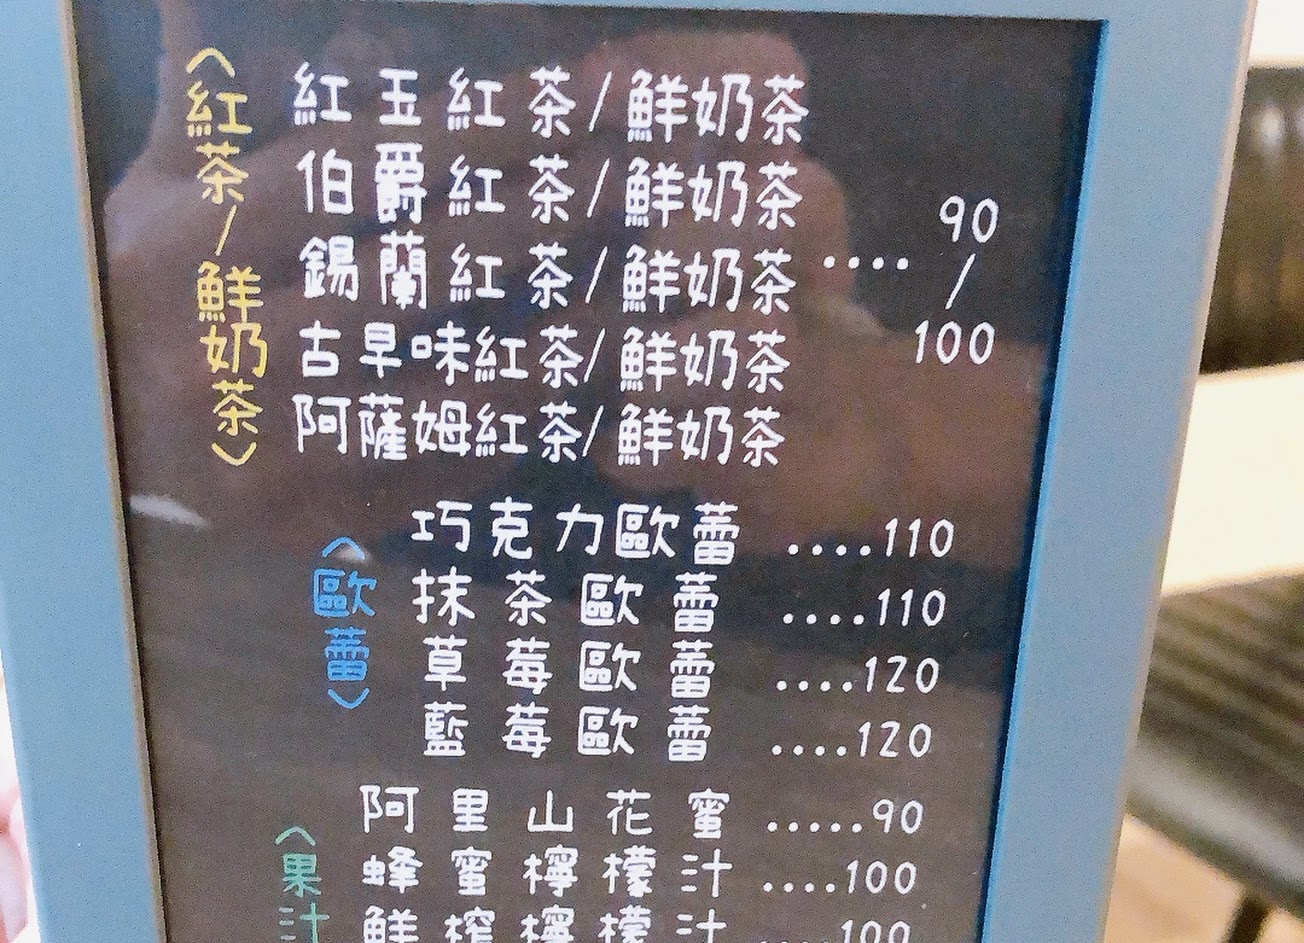 〈紅茶/鮮奶茶〉
紅玉紅茶/鮮奶茶
伯爵紅茶/鮮奶茶
錫蘭紅茶/鮮奶茶
古早味紅茶/鮮奶茶
阿薩姆紅茶/鮮奶茶
....90/100
〈歐蕾〉
巧克力歐蕾....110
抹茶歐蕾....110
草莓歐蕾....120
藍莓歐蕾....120
〈果汁
阿里山花蜜.....90
蜂蜜檸檬汁....100
鮮榨檸檬汁....100